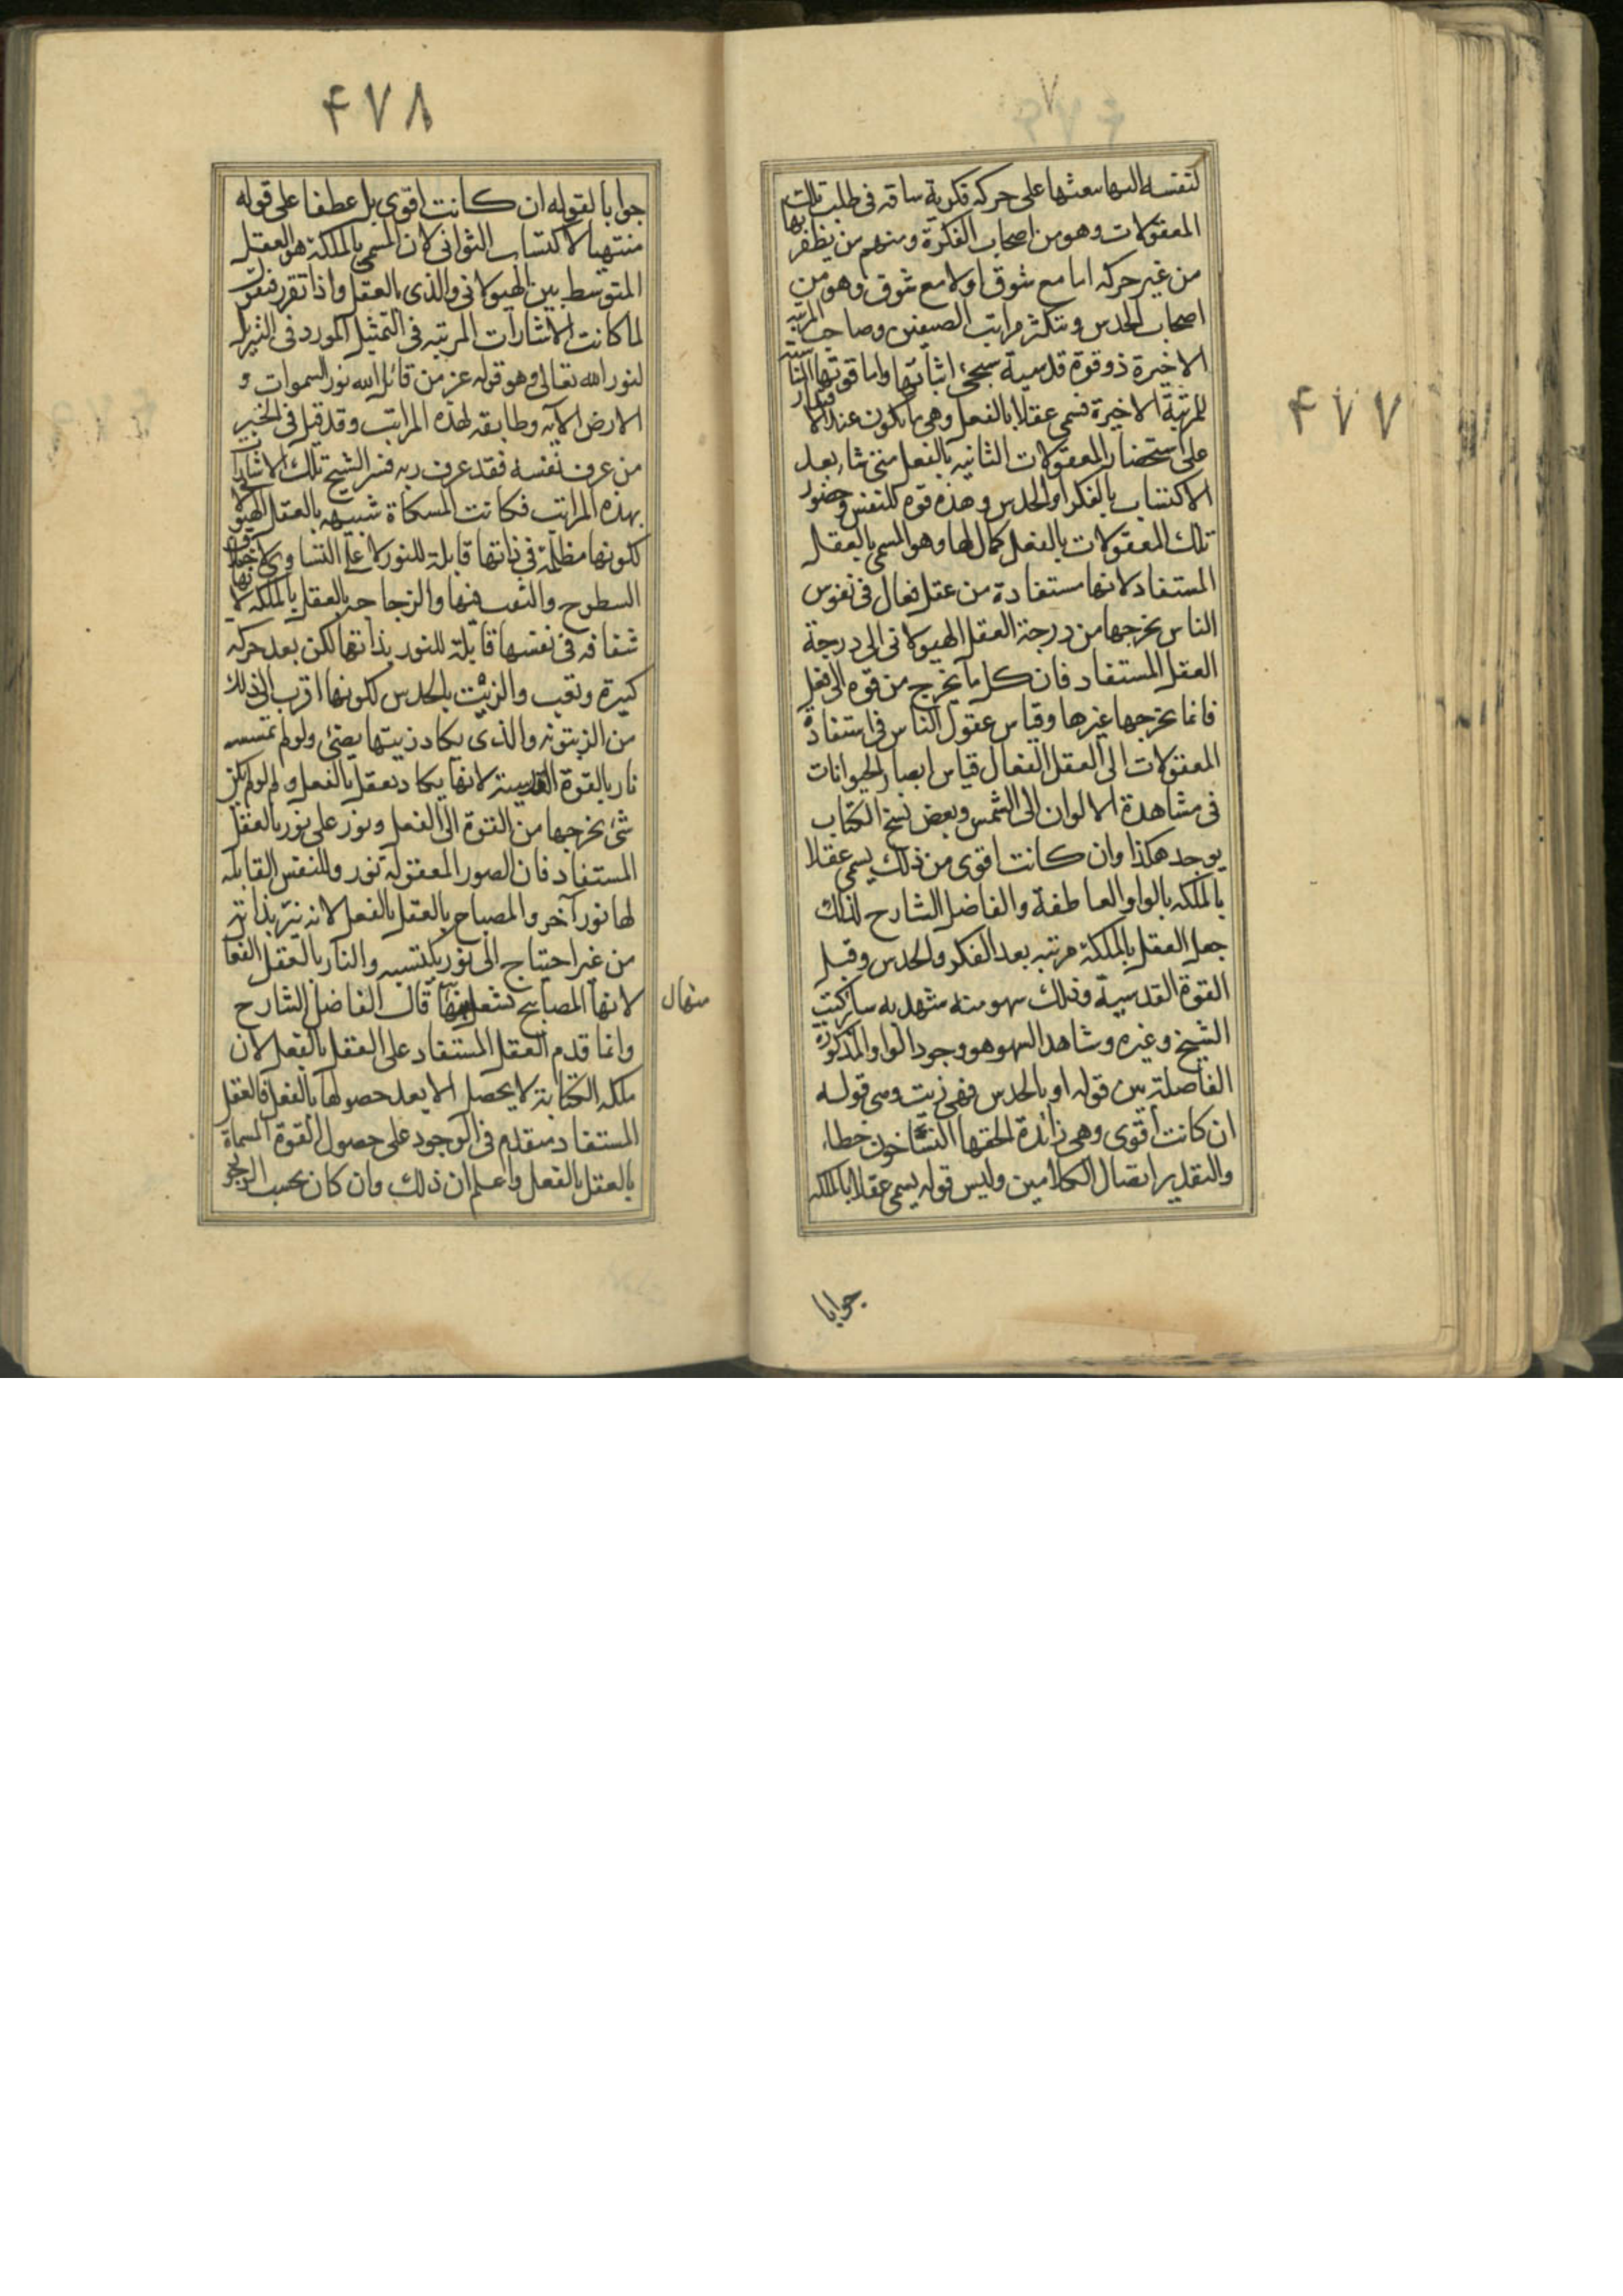 ۴۷۷
لنفسه اليها سعثها على حركه فكرية ساقه فى طلب تلك
المعقولات وهو من اصحاب الفكرة ومنهم من يظفر بها
من غير حركه اما مع شوق اولا مع شوق وهو من
اصحاب الحدس وتتكثر مراتب الصنفين وصاحب المرتبه
الاخيرة ذو قوة قدسية سيجئ اثباتها واما قوتها
للمرتبة الاخيرة فسمى عقلا بالفعل وهى ما يكون عند الاقتدار
على استحضار المعقولات الثانيه بالفعل متى شا بعد
الاكتساب بالفكر او الحدس وهذه قوه للنفس وحضور
تلك المعقولات بالفعل كمال لها وهو المسمى بالعقل
المستفاد لانها مستفادة من عقل فعال فى نفوس
الناس يخرجها من درجة العقل الهيولانى الى درجة
العقل المستفاد فان كل ما يخرج من قوه الى فعل
فانما يخرجها غيرها وقياس عقول الناس فى استفادة
المعقولات الى العقل الفعال قياس ابصار الحيوانات
فى مشاهدة الالوان الى الشمس وبعض نسخ الكتاب
يوجد هكذا وان كانت اقوى من ذلك يسمى عقلا
بالملكه بالواو العاطفة والفاضل الشارح لذلك
جعل العقل بالملكة مرتبه بعد الفكر والحدس وقبل
القوة القدسية وذلك سهو منه شهد به سائر كتب
الشيخ وغيره وشاهد السهو هو وجود الواو المذكورة
الفاصلة بين قوله او بالحدس فهى زيت وبين قوله
ان كانت اقوى وهى زائدة الحقها النساخون خطاء
والتقدير اتصال الكلامين وليس قوله يسمى عقلا بالملكه
جوابا
۴۷۸
جوابا لقوله ان كانت اقوى بل عطفا على قوله
منتهيا لاكتساب الثوانى لان المسمى بالملكة هو العقل
المتوسط بين الهيولانى والذى بالعقل واذا تقرر فنقول
لما كانت الاشارات المرتبه فى التمثيل المورد فى التنزيل
لنور الله تعالى وهو قوله عز من قائل الله نور السموات و
الارض الآيه وطابقه لهذه المراتب وقد قيل فى الخبر
من عرف نفسه فقد عرف ربه فسر الشيخ تلك الاشارات
بهذه المراتب فكانت المسكاة شبيهه بالعقل الهيولانى
لكونها مظلمة فى ذاتها قابلة للنور لا على التساوى لاختلاف
السطوح والثقب فيها والزجاجه بالعقل بالملكه لانها
شفافه فى نفسها قابلة للنور بذاتها لكن بعد حركه
كثيرة وتعب والزيت بالحدس لكونها اقرب الى ذلك
من الزيتونه والذى يكاد زيتها يضئ ولو لم تمسسه
نار بالقوة القدسية لانها يكاد تعقل بالفعل و لو لم يكن
شئ يخرجها من القوة الى الفعل ونور على نور بالعقل
المستفاد فان الصور المعقولة نور وللنفس القابله
لها نور آخر والمصباح بالعقل بالفعل لانه نير بذاته
من غير احتياج الى نور يكتسبه والنار بالعقل الفعا
لانها المصابيح تشعل منها قال الفاضل الشارح
منها ل
وانما قدم العقل المستفاد على العقل بالفعل لان
ملكه الكتابة لا يحصل الا بعد حصولها بالفعل فالعقل
المستفاد متقدم فى الوجود على حصول القوة المسماة
بالعقل بالفعل واعلم ان ذلك وان كان بحسب الوجو